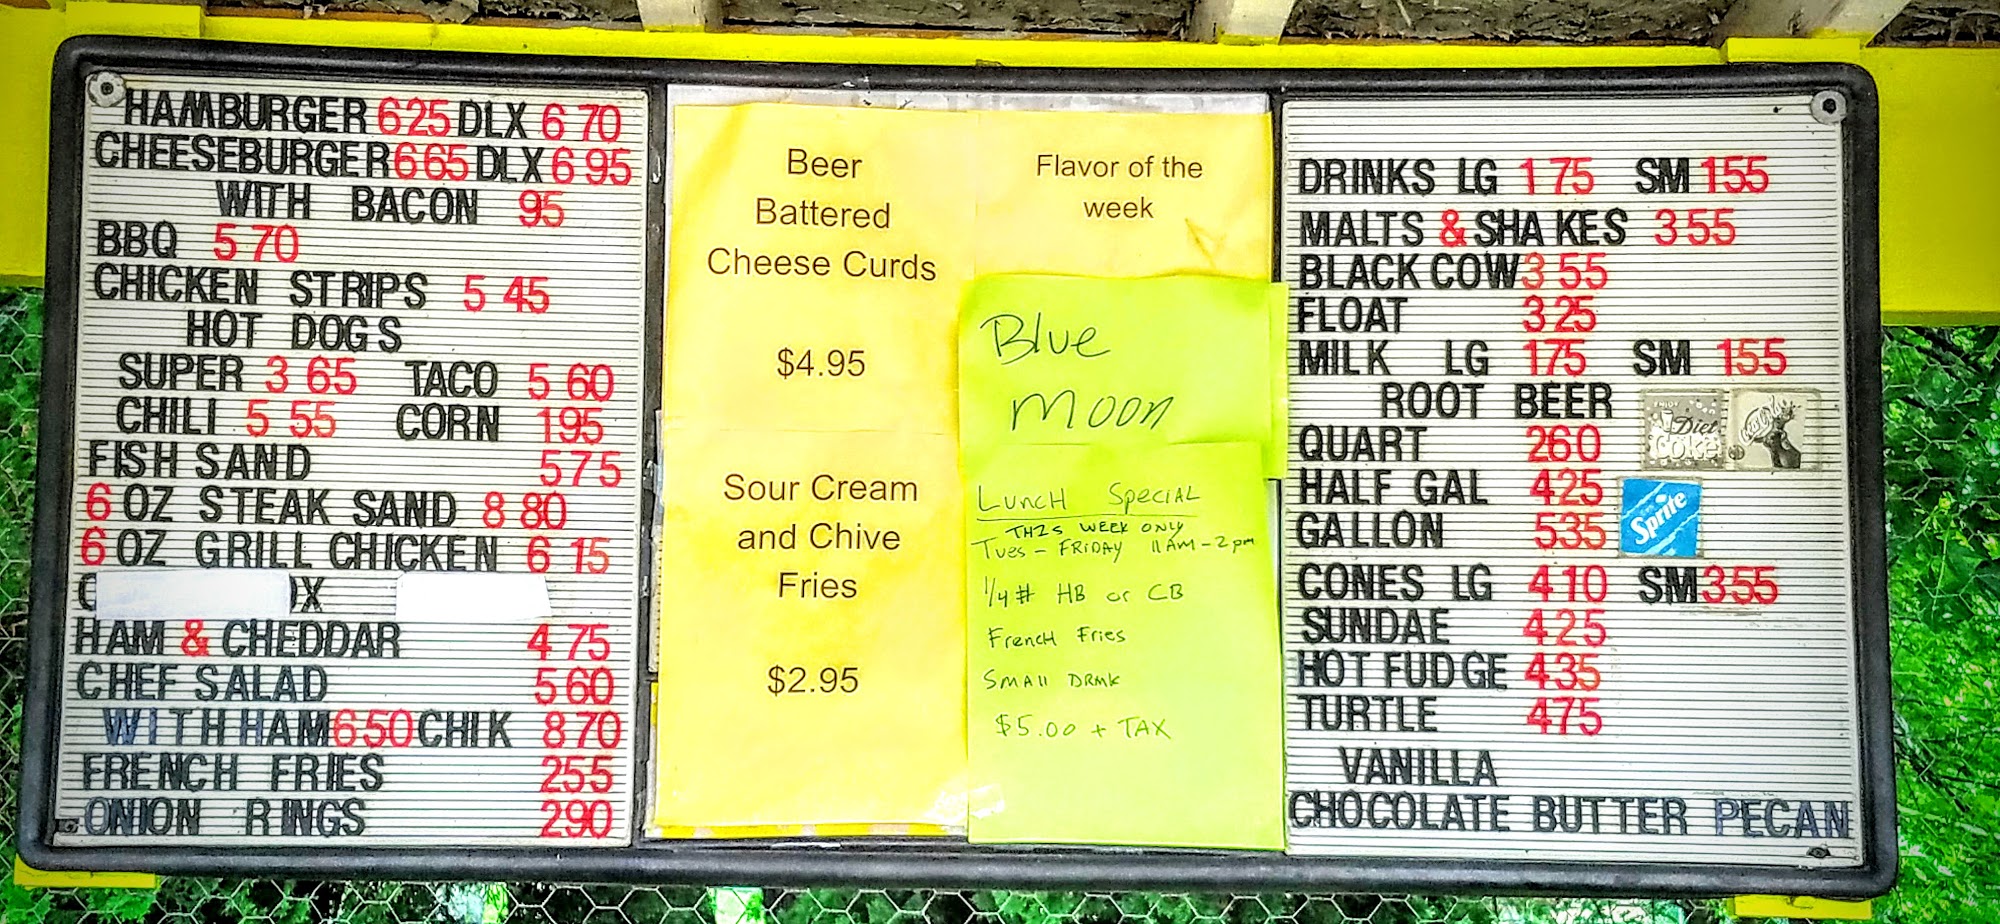 HAMBURGER 6 25 DLX 6 70
CHEESEBURGER 6 65 DLX 6 95
WITH BACON 95
BBQ 5 70
CHICKEN STRIPS 5 45
HOT DOGS
SUPER 3 65 TACO 5 60
CHILI 5 55 CORN 195
FISH SAND 5 75
6 OZ STEAK SAND 8 80
6 OZ GRILL CHICKEN 6 15
HAM & CHEDDAR 4 75
CHEF SALAD 5 60
WITH HAM 6 50 CHIK 8 70
FRENCH FRIES 255
ONION RINGS 290
Beer
Battered
Cheese Curds
$4.95
Sour Cream
and Chive
Fries
$2.95
Flavor of the
week
Blue
Moon
Lunch Special
THIS WEEK ONLY
Tues - FRIDAY 11 AM - 2 pm
1/4 # HB or CB
French Fries
Small DRNK
$5.00 + TAX
DRINKS LG 1 75 SM 155
MALTS & SHAKES 3 55
BLACK COW 3 55
FLOAT 3 25
MILK LG 175 SM 155
ROOT BEER
QUART 260
HALF GAL 425
GALLON 535
CONES LG 4 10 SM 355
SUNDAE 425
HOT FUDGE 435
TURTLE 475
VANILLA
CHOCOLATE BUTTER PECAN
Diet
Coke
Sprite